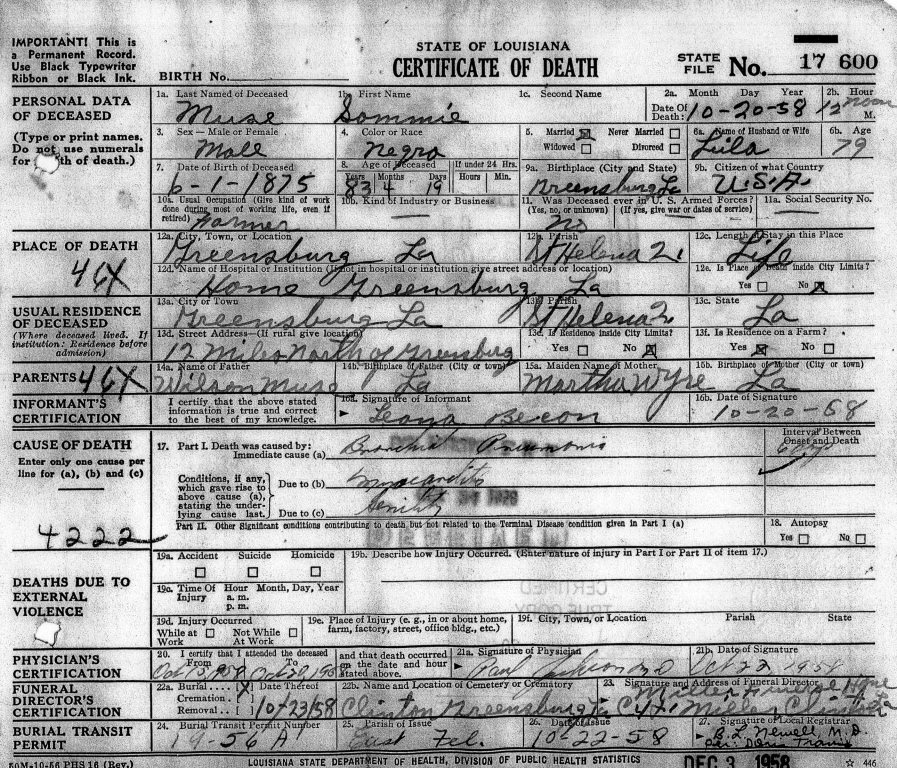 IMPORTANT! This is
a Permanent Record.
Use Black Typewriter
Ribbon or Black Ink.
STATE OF LOUISIANA
CERTIFICATE OF DEATH
BIRTH No.
STATE FILE No. 17 600
PERSONAL DATA OF DECEASED
(Type or print names. Do not use numerals for of death.)
1a. Last Named of Deceased
Muse
1b. First Name
Sommie
1c. Second Name
2a. Month Day Year
Date Of Death: 10-20-58
2b. Hour
12 noon M.
3. Sex — Male or Female
Male
4. Color or Race
Negro
5. Married ☒ Never Married ☐
Widowed ☐ Divorced ☐
6a. Name of Husband or Wife
Lula
6b. Age
79
7. Date of Birth of Deceased
6-1-1875
8. Age of Deceased
Years Months Days
83 4 19
If under 24 Hrs.
Hours Min.
9a. Birthplace (City and State)
Greensburg La
9b. Citizen of what Country
U.S.A.
10a. Usual Occupation (Give kind of work done during most of working life, even if retired)
Farmer
10b. Kind of Industry or Business
—
11. Was Deceased ever in U. S. Armed Forces?
(Yes, no, or unknown) (If yes, give war or dates of service)
No
11a. Social Security No.
—
PLACE OF DEATH
46X
12a. City, Town, or Location
Greensburg La
12b. Parish
St Helena
12c. Length of Stay in this Place
Life
12d. Name of Hospital or Institution (If not in hospital or institution give street address or location)
Home Greensburg La
12e. Is Place of Death inside City Limits?
Yes ☐ No ☒
USUAL RESIDENCE OF DECEASED
(Where deceased lived. If institution: Residence before admission)
13a. City or Town
Greensburg La
13b. Parish
St Helena
13c. State
La
13d. Street Address—(If rural give location)
12 Miles North of Greensburg
13e. Is Residence inside City Limits?
Yes ☐ No ☒
13f. Is Residence on a Farm?
Yes ☒ No ☐
PARENTS 46X
14a. Name of Father
Wilson Muse
14b. Birthplace of Father (City or town)
La
15a. Maiden Name of Mother
Martha Wyre
15b. Birthplace of Mother (City or town)
La
INFORMANT'S CERTIFICATION
I certify that the above stated information is true and correct to the best of my knowledge.
16a. Signature of Informant
Leona Becon
16b. Date of Signature
10-20-58
CAUSE OF DEATH
Enter only one cause per line for (a), (b) and (c)
4222
17. Part I. Death was caused by:
Immediate cause (a) Bronchial Pneumonia
Interval Between Onset and Death
Conditions, if any, which gave rise to above cause (a), stating the underlying cause last.
Due to (b) Myocarditis
Due to (c) Senility
Part II. Other Significant conditions contributing to death but not related to the Terminal Disease condition given in Part I (a)
18. Autopsy
Yes ☐ No ☐
DEATHS DUE TO EXTERNAL VIOLENCE
19a. Accident Suicide Homicide
☐ ☐ ☐
19b. Describe how Injury Occurred. (Enter nature of injury in Part I or Part II of item 17.)
19c. Time Of Injury Hour a. m. p. m. Month, Day, Year
CERTIFIED
TRUE COPY
19d. Injury Occurred
While at Work ☐ Not While At Work ☐
19e. Place of Injury (e. g., in or about home, farm, factory, street, office bldg., etc.)
19f. City, Town, or Location Parish State
PHYSICIAN'S CERTIFICATION
20. I certify that I attended the deceased
From To
and that death occurred on the date and hour stated above.
21a. Signature of Physician
Paul Jackson M.D.
21b. Date of Signature
Oct 22 1958
FUNERAL DIRECTOR'S CERTIFICATION
22a. Burial ☒ Date Thereof
Cremation ☐
Removal ☐ 10/23/58
22b. Name and Location of Cemetery or Crematory
Clinton Greensburg
23. Signature and Address of Funeral Director
Miller Funeral Home
Miller Clinton La
BURIAL TRANSIT PERMIT
24. Burial Transit Permit Number
19-56 A
25. Parish of Issue
East Fel.
26. Date of Issue
10-22-58
27. Signature of Local Registrar
B. L. Newell, M.D.
50M-10-56 PHS 16 (Rev.)
LOUISIANA STATE DEPARTMENT OF HEALTH, DIVISION OF PUBLIC HEALTH STATISTICS
DEC 3 1958
☆ 446